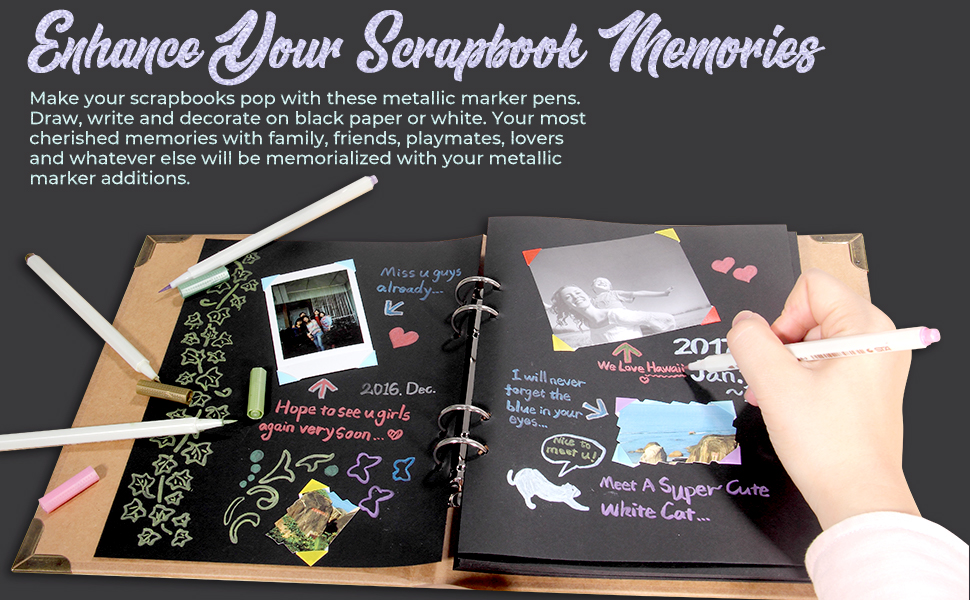 Enhance Your Scrapbook Memories
Make your scrapbooks pop with these metallic marker pens.
Draw, write and decorate on black paper or white. Your most
cherished memories with family, friends, playmates, lovers
and whatever else will be memorialized with your metallic
marker additions.
Miss u guys
already...
2016. Dec.
Hope to see u girls
again very soon...
2017
Jan.
We Love Hawaii
I will never
forget the
blue in your
eyes...
Nice to
meet u!
Meet A Super Cute
White Cat...